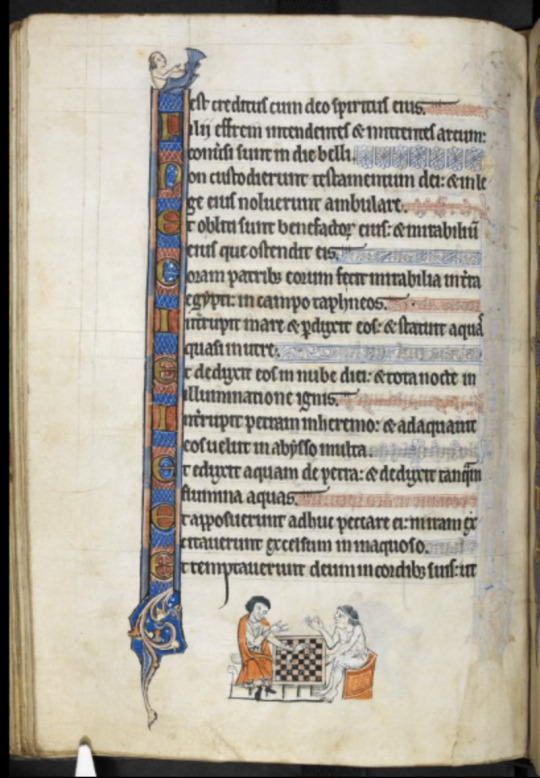 est creditus cum deo spiritus eius.
Filij effrem intendentes & mittentes arcum:
conũsi sunt in die belli
Non custodierunt testamentum dei: & in le
ge eius noluerunt ambulare.
Et obliti sunt benefactoꝝ eius: & mirabiliū
eius que ostendit eis.
Coram patribꝫ eorum fecit mirabilia in t̃ra
egypti: in campo taphneos.
Int̃rupit mare & ꝑduxit eos: & statuit aquā
quasi in utre.
Et deduxit eos in nube diei: & tota nocte in
illuminatione ignis.
Int̃rupit petram in heremo: & adaquauit
eos uelut in abysso multa.
Et eduxit aquam de petra: & deduxit tanq̃m
flumina aquas.
Et apposuerunt adhuc peccare ei: in iram ex
citauerunt excelsum in inaquoso.
Et temptauerunt deum in cordibꝫ suis: ut